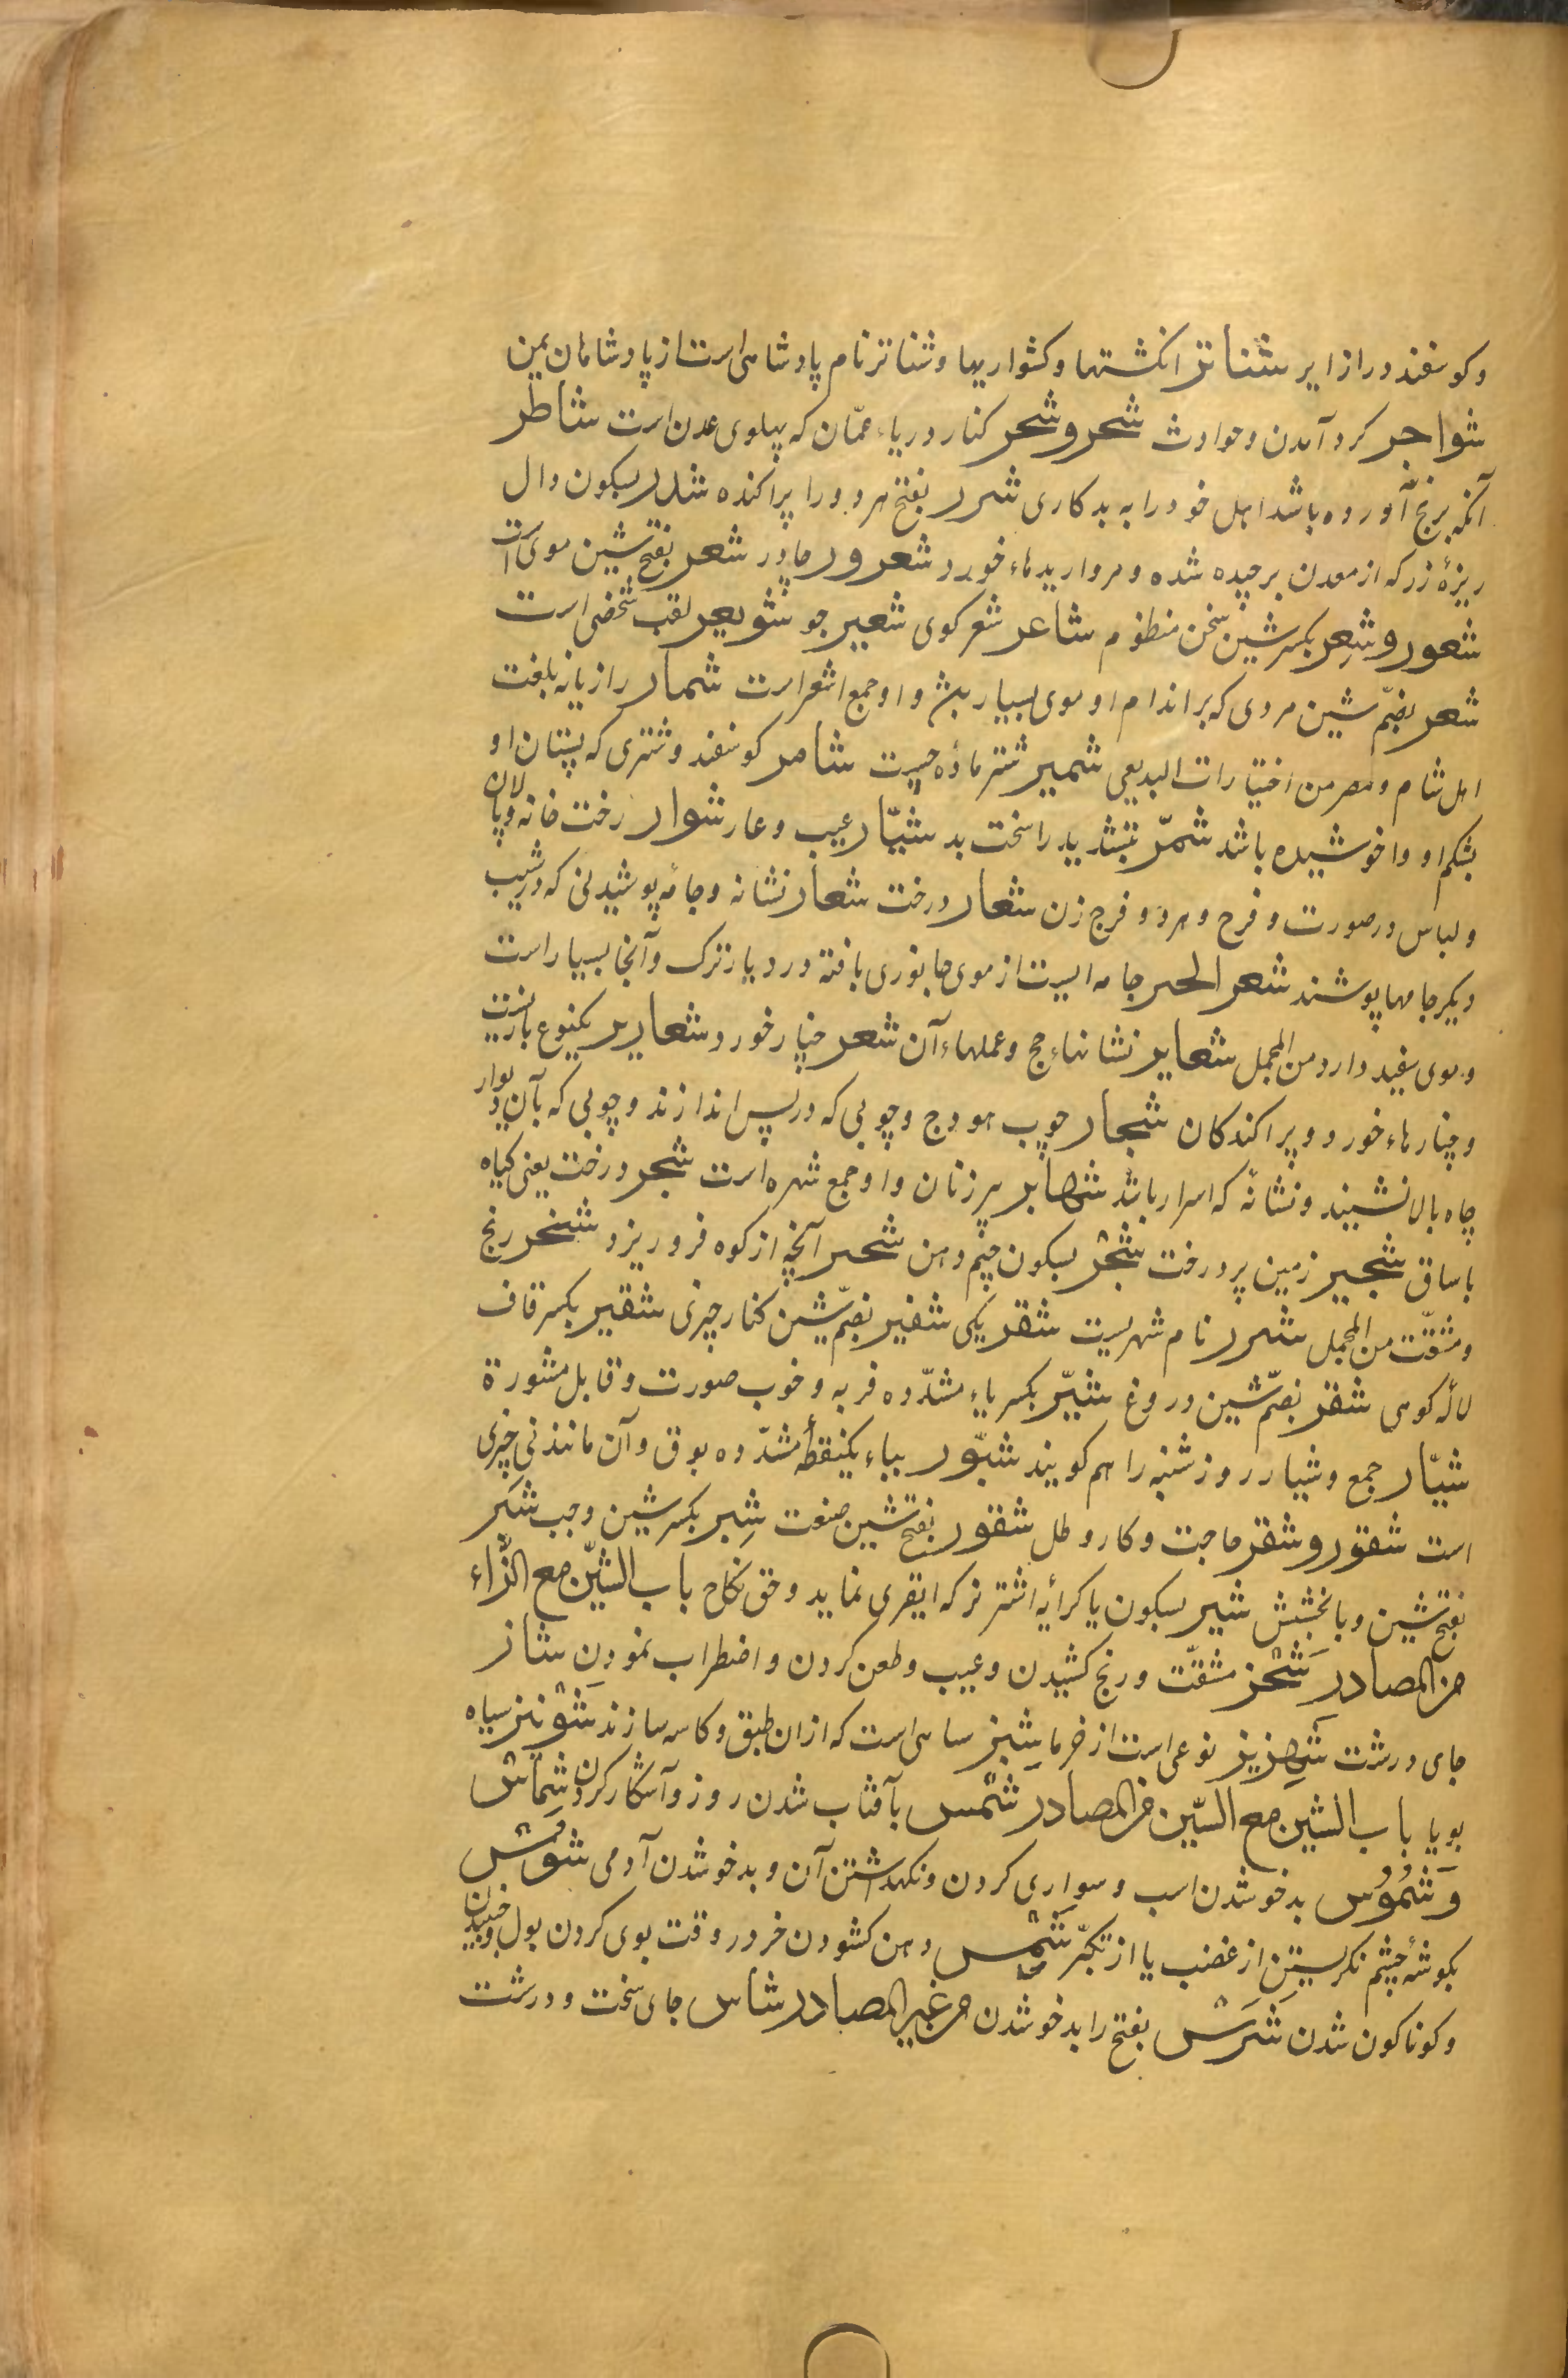 وکوسفند دراز ایر شناتر انکشتها وکشواریها وشناتر نام پادشاهی است از پادشاهان یمن
شواجر کرد آمدن وحوادث شحر وشحر کنار دریاء عمّان که پهلوی عدن است شاطر
آنکه برنج آورده باشد اهل خود را به بدکاری شرر بفتح هر دو را پراکنده شذر بسکون دال
ریزهٔ زر که از معدن برچیده شده ومرواریدهاء خورد شعرور شعر بفتح شین موی است
شعور وشِعر بکسر شین سخن منظوم شاعر شعر کوی شعیر جو شویعر لقب شخصی است
شعر بضمّ شین مردی که بر اندام او موی بسیار باشد واو جمع اشعر است شمار رازیانه بلغت
اهل شام ومصر من اختیارات البدیعی شمیر شتر مادهٔ شامر کوسفند وشتری که پستان او
بشکم او واخوشیده باشد شمرّ بتشدید را سخت بد شیّار عیب وعار شوار رخت خانه وپالان
ولباس در صورت وفرح ومرد وفرج زن شعار درخت شعار نشانه وجامهٔ پوشیدنی که در شیب
دیکر جامها پوشند شعر الحر جامه ایست از موی جانوری بافته در دیار ترک وآنجا بسیار است
وموی سفید دارد من المجمل شعایر نشانهاء حج وعملهاء آن شعر خیار خورد وشعاریر یکنوع بازیست
وخیارهاء خورد وپراکندکان شجار چوب هودج وچوبی که در پس اندازند وچوبی که بآن دیوار
چاه بالا نشیند ونشانهٔ که اسرار باشد شهابر پیر زنان واو جمع شهبره است شجر درخت یعنی کیاه
با ساق شجیر زمین پر درخت شجْر بسکون جیم دهن شحر آنچه از کوه فرو ریزد شخر رنج
ومشقّت من المجمل شرر نام شهریست شقر یکی شفیر بضمّ شین کنار چیزی شقیر بکسر قاف
لالهٔ کوهی شقر بضمّ شین دروغ شیّر بکسر یاء مشدّده فربه وخوب صورت وقابل مشورة
شیّار جمع وشیار روز شنبه را هم کویند شبّور بباء یکنقطهٔ مشدّده بوق وآن مانند نی چیزی
است شقور وشقر حاجت وکار وطل شقور بفتح شین صنعت شِبر بکسر شین وجب شَبَر
بفتح شین وبا بخشش شبر بسکون یا کرایهٔ اشتر نر که ایقری نماید وحق نکاح باب الشّین مع الزّاء
من المصادر شَحْز مشقّت ورنج کشیدن وعیب وطعن کردن واضطراب نمودن شاز
جای درشت شهریز نوعی است از خرما شیز ساهی است که ازان طبق وکاسه سازند شونیز سیاه
بویا باب الشین مع السّین من المصادر شمْس بآفتاب شدن روز وآشکار کردن شِماس
وَشُمُوس بدخو شدن اسب وسواری کردن ونکهداشتن آن وبدخو شدن آدمی شَوَس
بکوشهٔ چشم نکریستن از غضب یا از تکبّر دهن کشودن خر در وقت بوی کردن بول
وکوناکون شدن شَرَس بفتح را بدخو شدن من غیر المصادر شاس جای سخت ودرشت